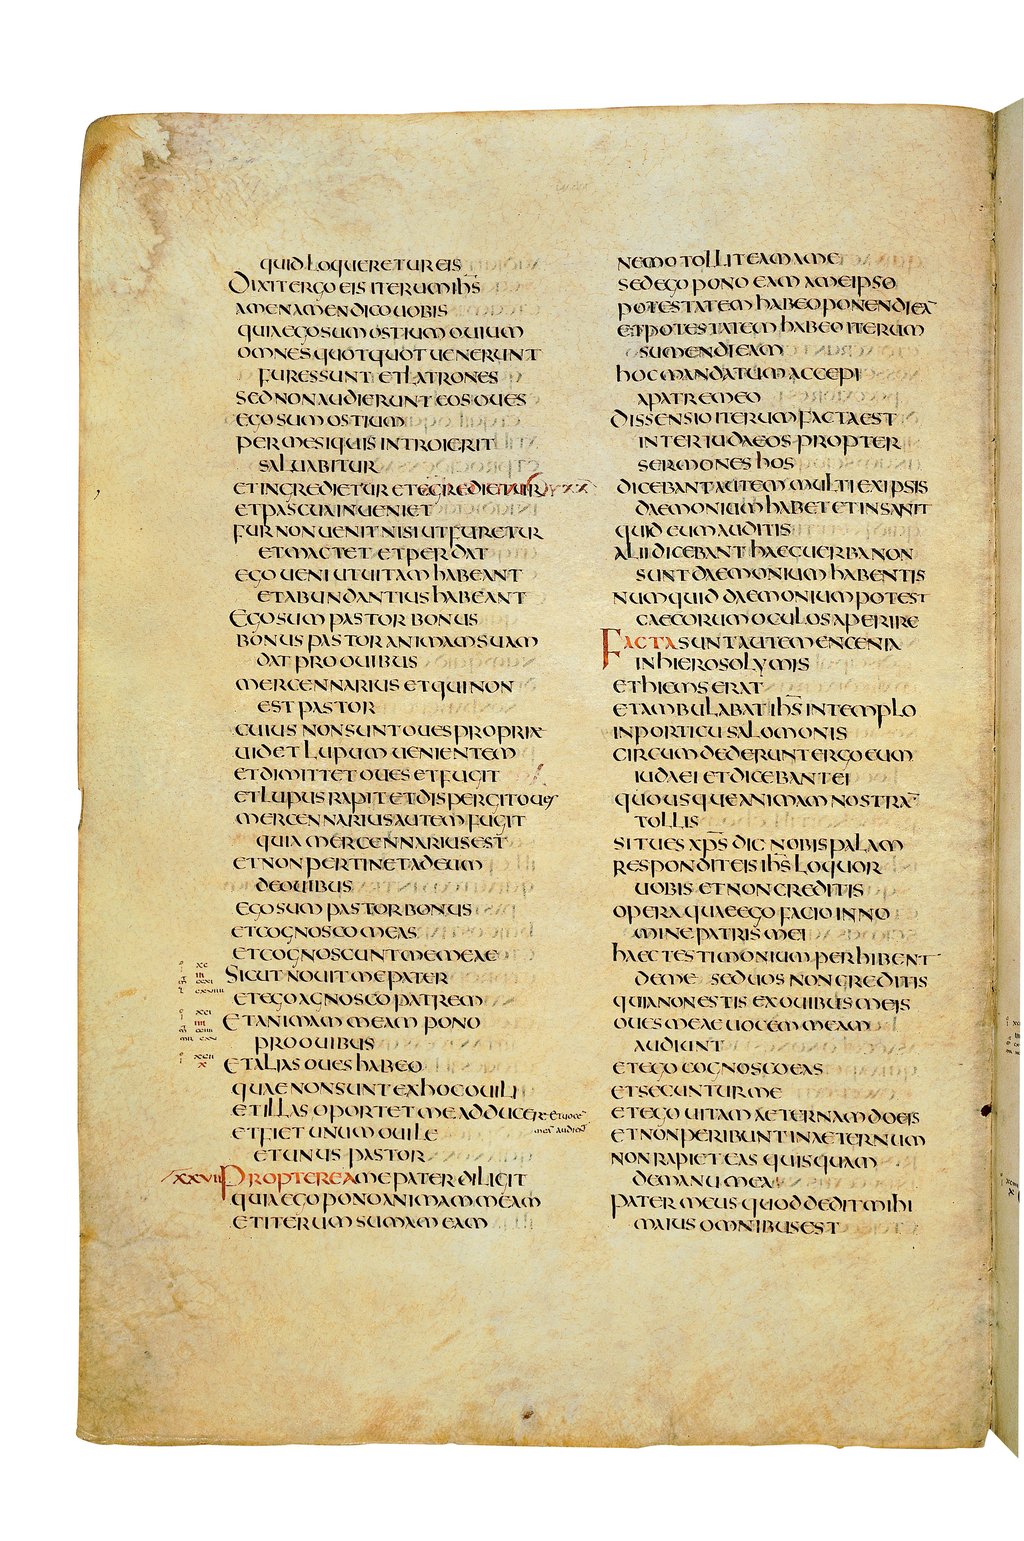 QUID LOQUERETUR EIS
DIXIT ERGO EIS ITERUM IHS
AMEN AMEN DICO UOBIS
QUIA EGO SUM OSTIUM OUIUM
OMNES QUOTQUOT UENERUNT
FURES SUNT ET LATRONES
SED NON AUDIERUNT EOS OUES
EGO SUM OSTIUM
PER ME SI QUIS INTROIERIT
SALUABITUR
ET INGREDIETUR ET EGREDIETUR
ET PASCUA INUENIET
FUR NON UENIT NISI UT FURETUR
ET MACTET ET PERDAT
EGO UENI UT UITAM HABEANT
ET ABUNDANTIUS HABEANT
EGO SUM PASTOR BONUS
BONUS PASTOR ANIMAM SUAM
DAT PRO OUIBUS
MERCENNARIUS ET QUI NON
EST PASTOR
CUIUS NON SUNT OUES PROPRIAE
UIDET LUPUM UENIENTEM
ET DIMITTET OUES ET FUGIT
ET LUPUS RAPIT ET DISPERGIT OUES
MERCENNARIUS AUTEM FUGIT
QUIA MERCENNARIUS EST
ET NON PERTINET AD EUM
DE OUIBUS
EGO SUM PASTOR BONUS
ET COGNOSCO MEAS
ET COGNOSCUNT ME MEAE
SICUT NOUIT ME PATER
ET EGO AGNOSCO PATREM
ET ANIMAM MEAM PONO
PRO OUIBUS
ET ALIAS OUES HABEO
QUAE NON SUNT EX HOC OUILI
ET ILLAS OPORTET ME ADDUCERE ET UOCE
MEA AUDIENT
ET FIET UNUM OUILE
ET UNUS PASTOR
XXVII PROPTEREA ME PATER DILIGIT
QUIA EGO PONO ANIMAM MEAM
ET ITERUM SUMAM EAM
NEMO TOLLIT EAM A ME
SED EGO PONO EAM A ME IPSO
POTESTATEM HABEO PONENDI EA̅
ET POTESTATEM HABEO ITERUM
SUMENDI EAM
HOC MANDATUM ACCEPI
A PATRE MEO
DISSENSIO ITERUM FACTA EST
INTER IUDAEOS PROPTER
SERMONES HOS
DICEBANT AUTEM MULTI EX IPSIS
DAEMONIUM HABET ET INSANIT
QUID EUM AUDITIS
ALII DICEBANT HAEC UERBA NON
SUNT DAEMONIUM HABENTIS
NUMQUID DAEMONIUM POTEST
CAECORUM OCULOS APERIRE
FACTA SUNT AUTEM ENCENIA
IN HIEROSOLYMIS
ET HIEMS ERAT
ET AMBULABAT IHS IN TEMPLO
IN PORTICU SALOMONIS
CIRCUMDEDERUNT ERGO EUM
IUDAEI ET DICEBANT EI
QUOUSQUE ANIMAM NOSTRA̅
TOLLIS
SI TU ES XPS DIC NOBIS PALAM
RESPONDIT EIS IHS LOQUOR
UOBIS ET NON CREDITIS
OPERA QUAE EGO FACIO IN NO
MINE PATRIS MEI
HAEC TESTIMONIUM PERHIBENT
DE ME SED UOS NON CREDITIS
QUIA NON ESTIS EX OUIBUS MEIS
OUES MEAE UOCEM MEAM
AUDIUNT
ET EGO COGNOSCO EAS
ET SECUNTUR ME
ET EGO UITAM AETERNAM DO EIS
ET NON PERIBUNT IN AETERNUM
NON RAPIET EAS QUISQUAM
DE MANU MEA
PATER MEUS QUOD DEDIT MIHI
MAIUS OMNIBUS EST